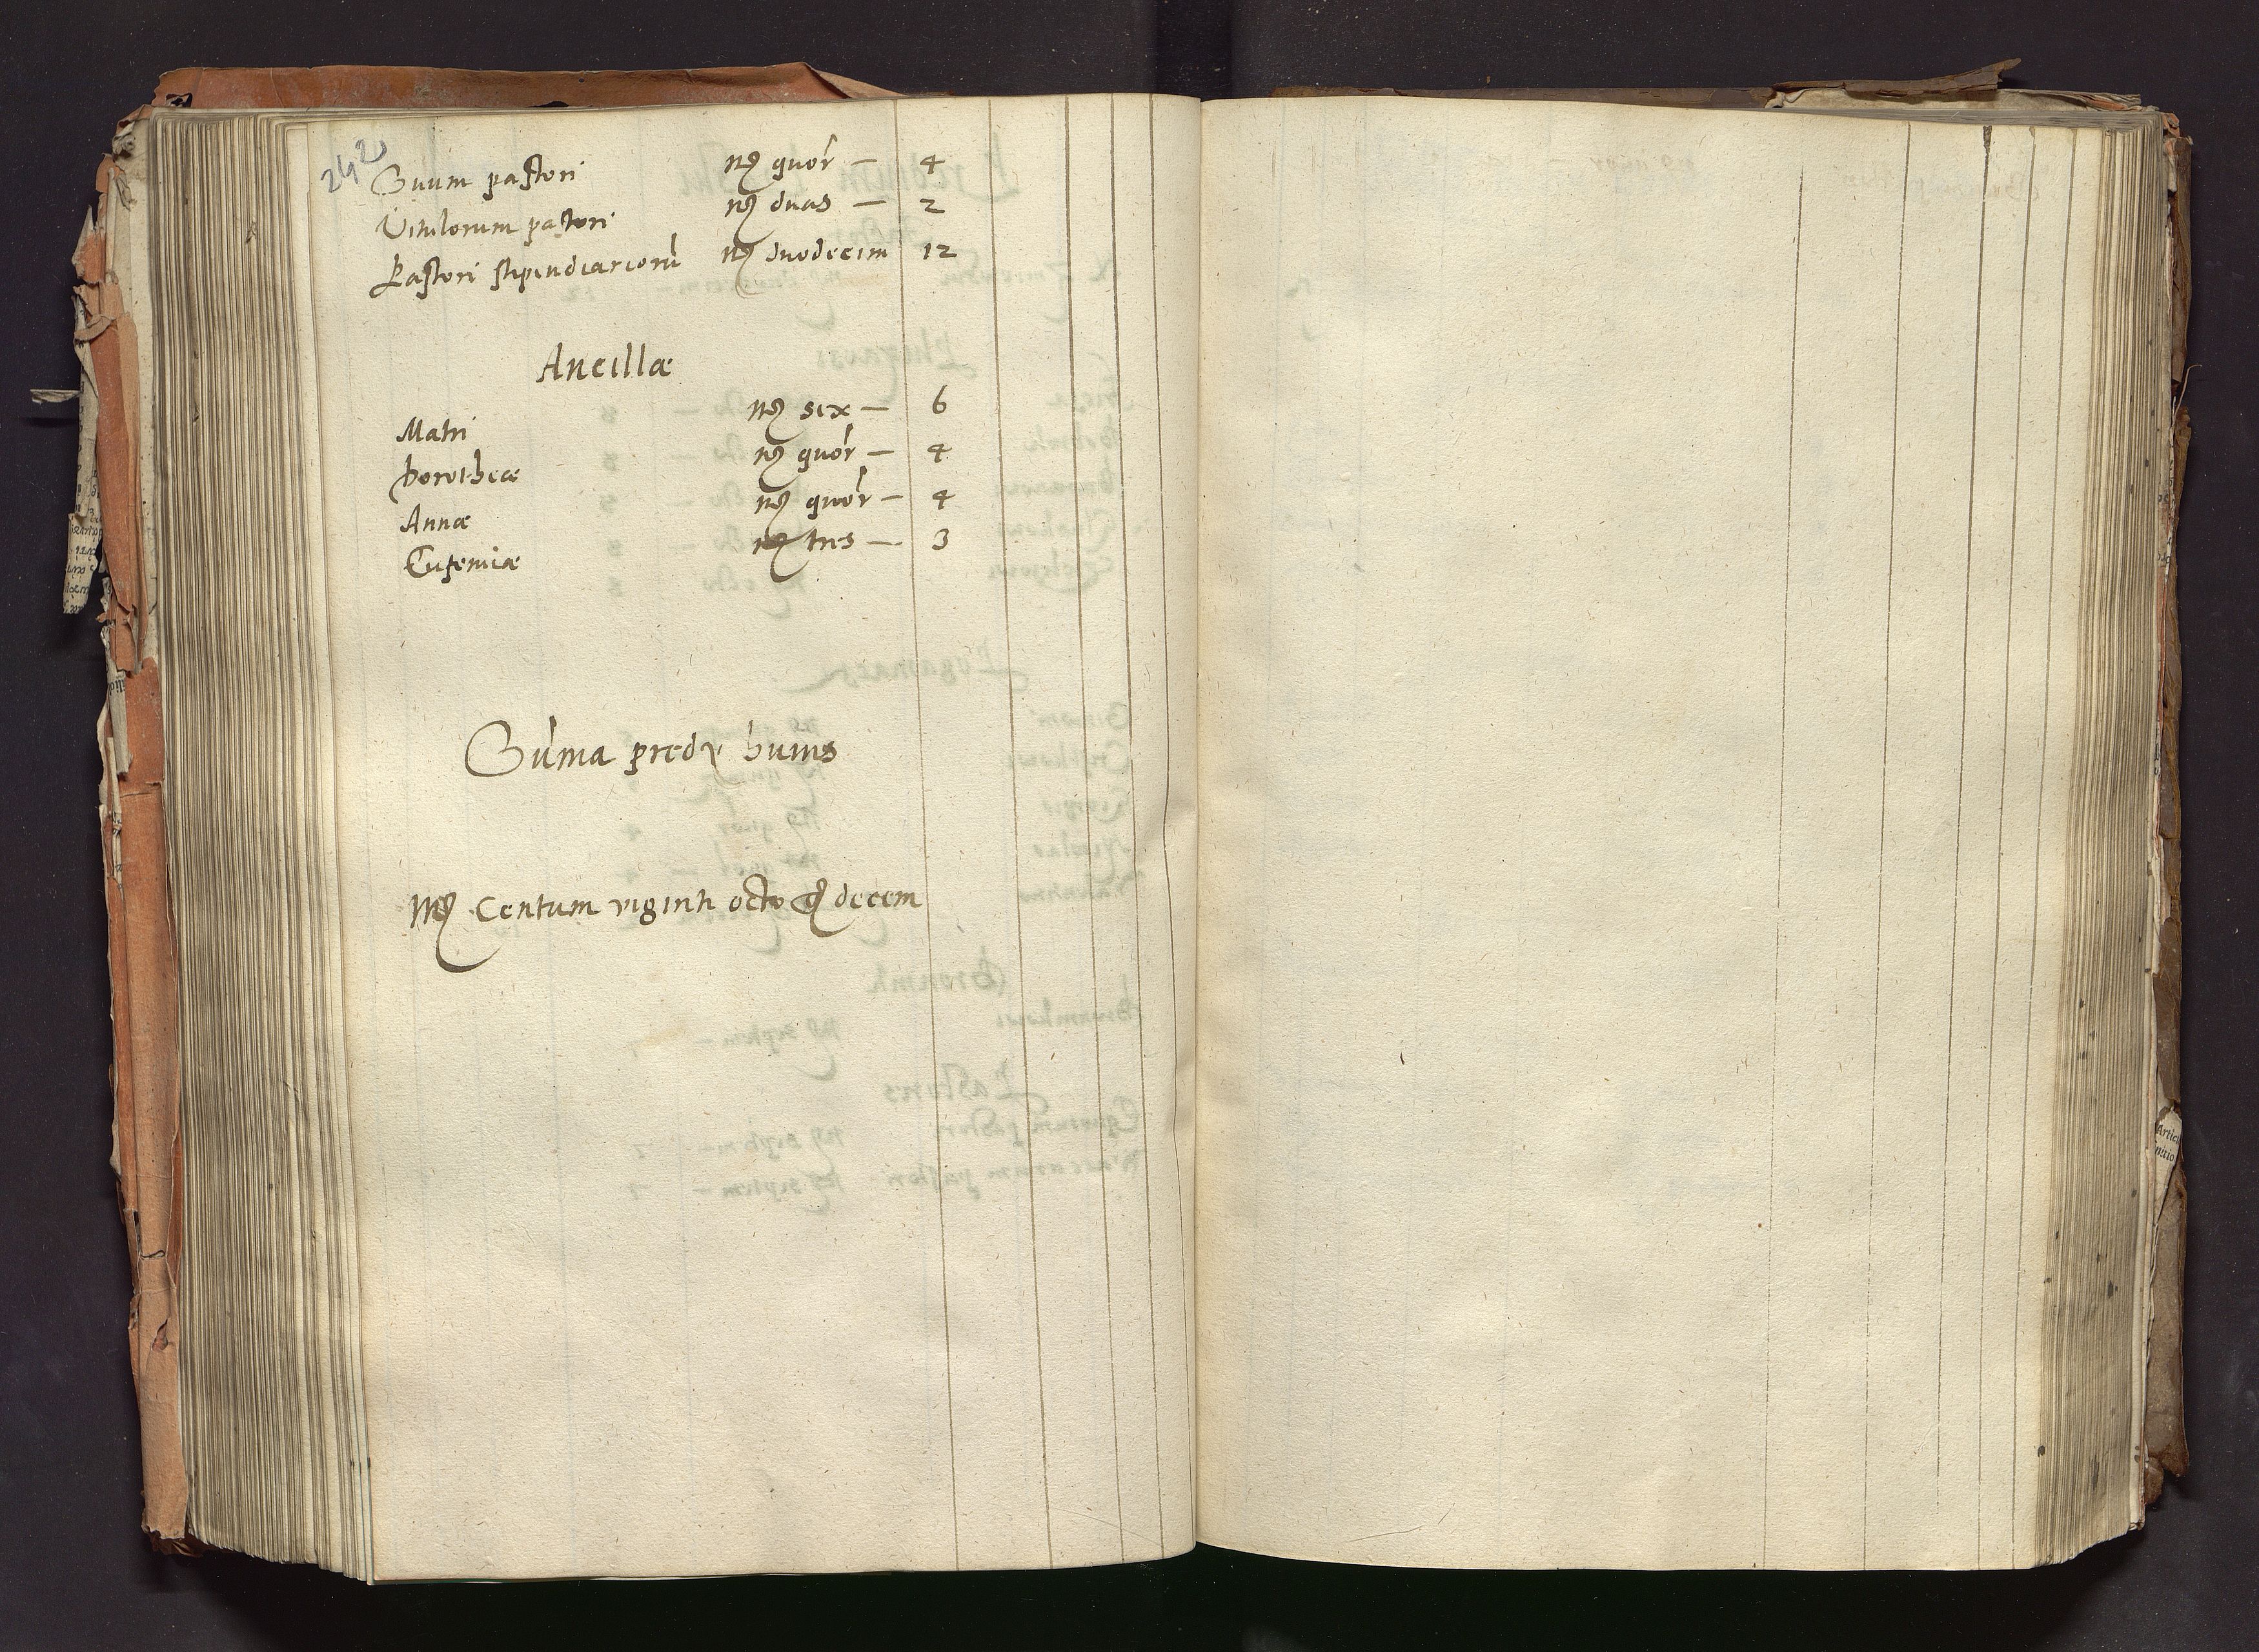 242
Suum pastori mꝫ quor̃ — 4
Vitulorum pastori mꝫ duas — 2
Pastori stipendiariorũ mꝫ duodecim 12
Ancillæ
Matri mꝫ sex — 6
Dorotheæ mꝫ quor̃ — 4
Annæ mꝫ quor̃ — 4
Eufemiæ mꝫ tres — 3
Sũma pred huius
Mꝫ Centum viginti octo decem